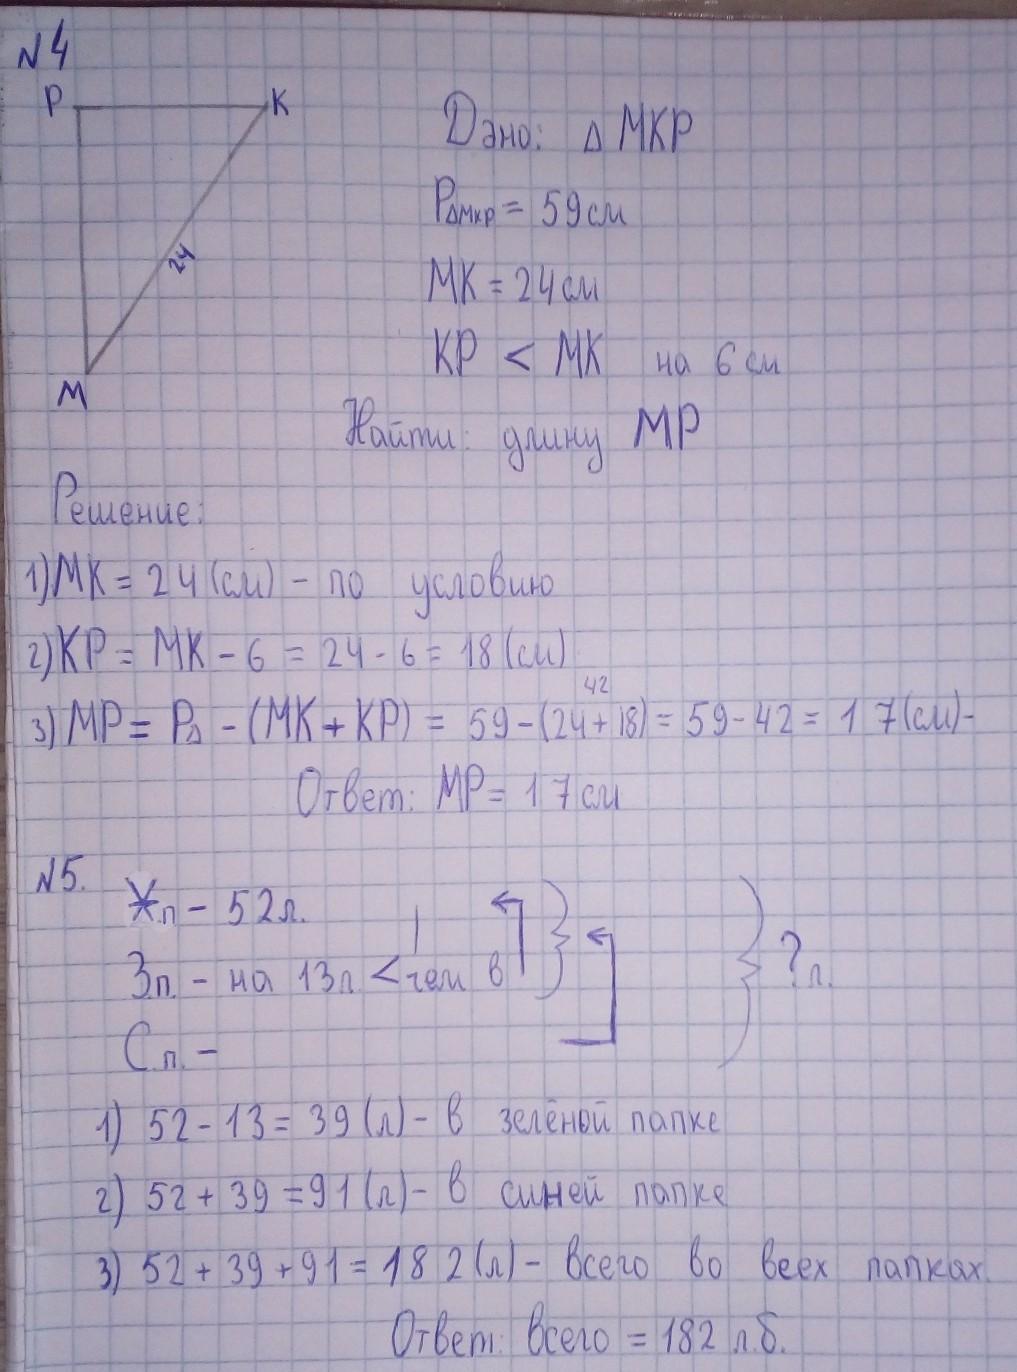 №4
P K
Дано: Δ МКР
PΔмкр = 59см
24
МК = 24см
КР < МК на 6 см
М
Найти: длину МР
Решение:
1) МК = 24 (см) - по условию
2) КР = МК - 6 = 24 - 6 = 18 (см)
42
3) МР = PΔ - (МК + КР) = 59 - (24 + 18) = 59 - 42 = 17 (см) -
Ответ: МР = 17 см
№5.
Ж.п - 52л.
З.п. - на 13л < чем в
? л.
С.п. -
1) 52 - 13 = 39 (л) - в зелёной папке
2) 52 + 39 = 91 (л) - в синей папке
3) 52 + 39 + 91 = 182 (л) - всего во всех папках
Ответ: всего = 182 л.б.